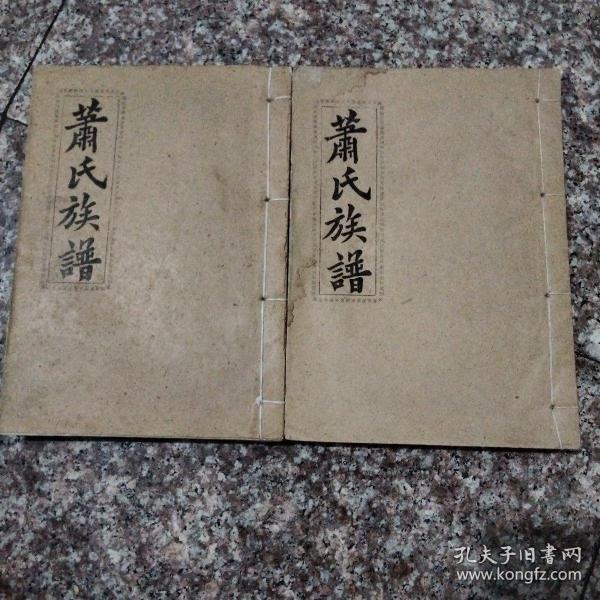 蕭氏族譜
蕭氏族譜
孔夫子旧書网
www.kongfz.com